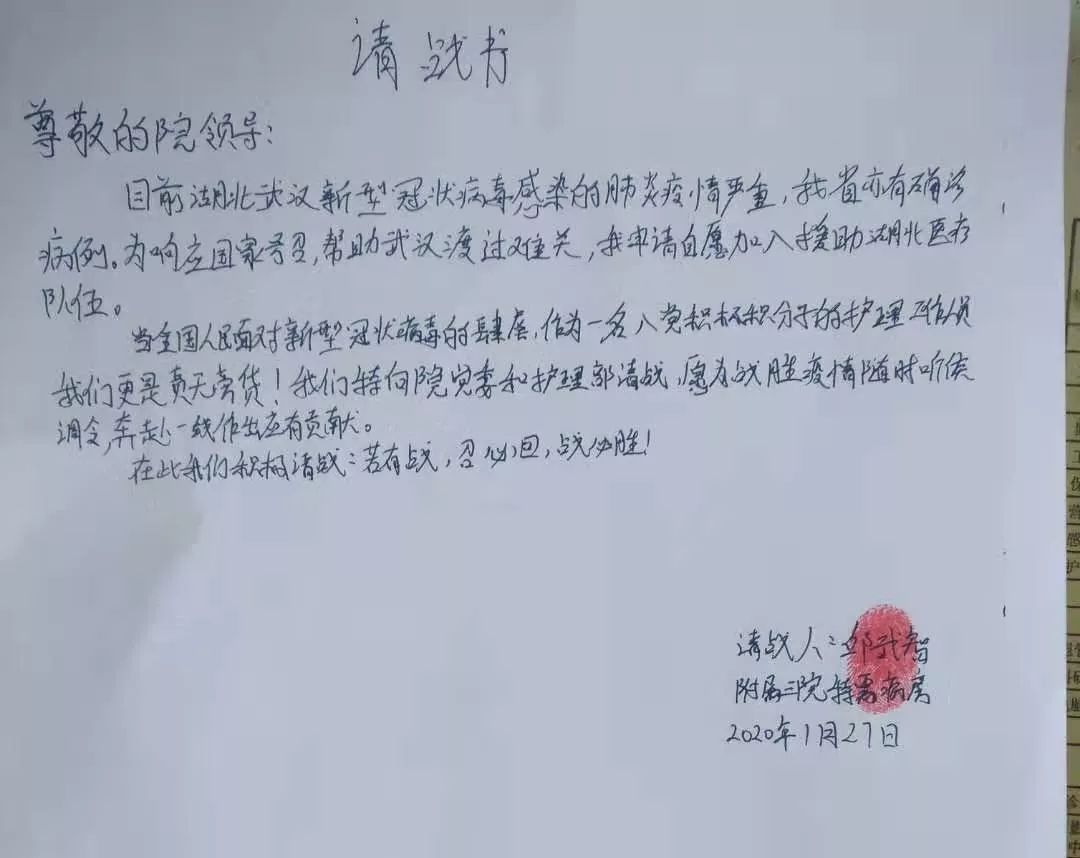 请战书
尊敬的院领导:
目前湖北武汉新型冠状病毒感染的肺炎疫情严重,我省亦有确诊
病例。为响应国家号召,帮助武汉渡过难关,我申请自愿加入援助湖北医疗
队伍。
当全国人民面对新型冠状病毒的肆虐,作为一名入党积极积分子的护理工作人员
我们更是责无旁贷!我们特向院党委和护理部请战,愿为战胜疫情随时听候
调令,奔赴一线作出应有贡献。
在此我们积极请战:若有战,召必回,战必胜!
请战人:邹武智
附属三院特需病房
2020年1月27日
保
营
感
护
诊
中